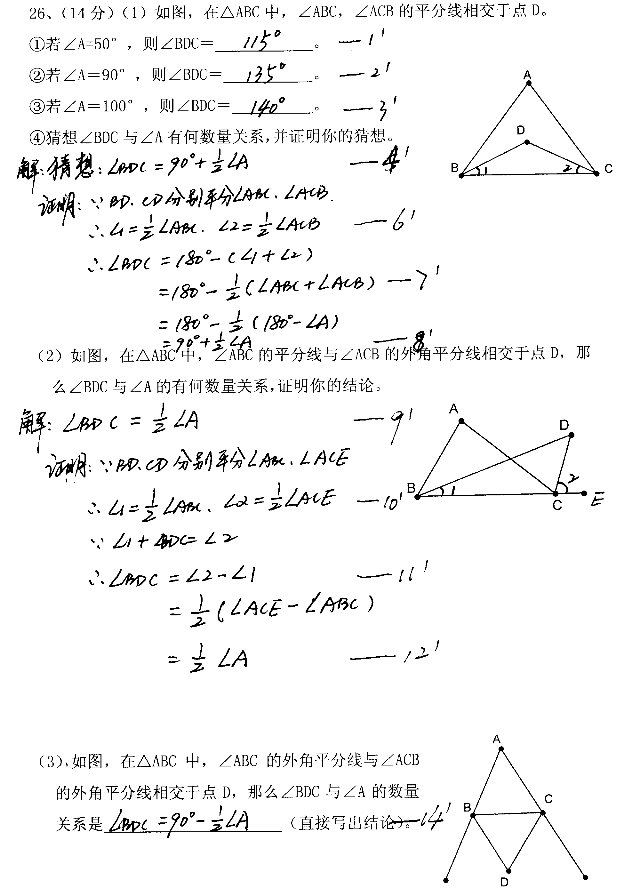 26、(14分)(1)如图，在△ABC中，∠ABC，∠ACB的平分线相交于点D。
①若∠A=50°，则∠BDC= 115° 。 — 1'
②若∠A=90°，则∠BDC= 135° 。 — 2'
③若∠A=100°，则∠BDC= 140° 。 — 3'
④猜想∠BDC与∠A有何数量关系,并证明你的猜想。
解:猜想:∠BDC = 90°+½∠A — 4'
证明:∵BD.CD分别平分∠ABC.∠ACB.
∴∠1=½∠ABC. ∠2=½∠ACB — 6'
∴∠BDC = 180°-(∠1+∠2)
=180°-½(∠ABC+∠ACB) — 7'
=180°-½(180°-∠A)
=90°+½∠A — 8'
A
D
B 1 2 C
(2)如图，在△ABC中，∠ABC的平分线与∠ACB的外角平分线相交于点D，那
么∠BDC与∠A的有何数量关系,证明你的结论。
解: ∠BDC = ½∠A — 9'
证明:∵BD.CD分别平分∠ABC.∠ACE
∴∠1=½∠ABC. ∠2=½∠ACE — 10'
∵∠1+∠BDC=∠2
∴∠BDC =∠2-∠1 — 11'
=½(∠ACE-∠ABC)
=½∠A — 12'
A
D
B 1 2 C E
(3),如图，在△ABC 中，∠ABC 的外角平分线与∠ACB
的外角平分线相交于点D，那么∠BDC与∠A的数量
关系是 ∠BDC =90°-½∠A (直接写出结论)。 — 14'
A
B C
D